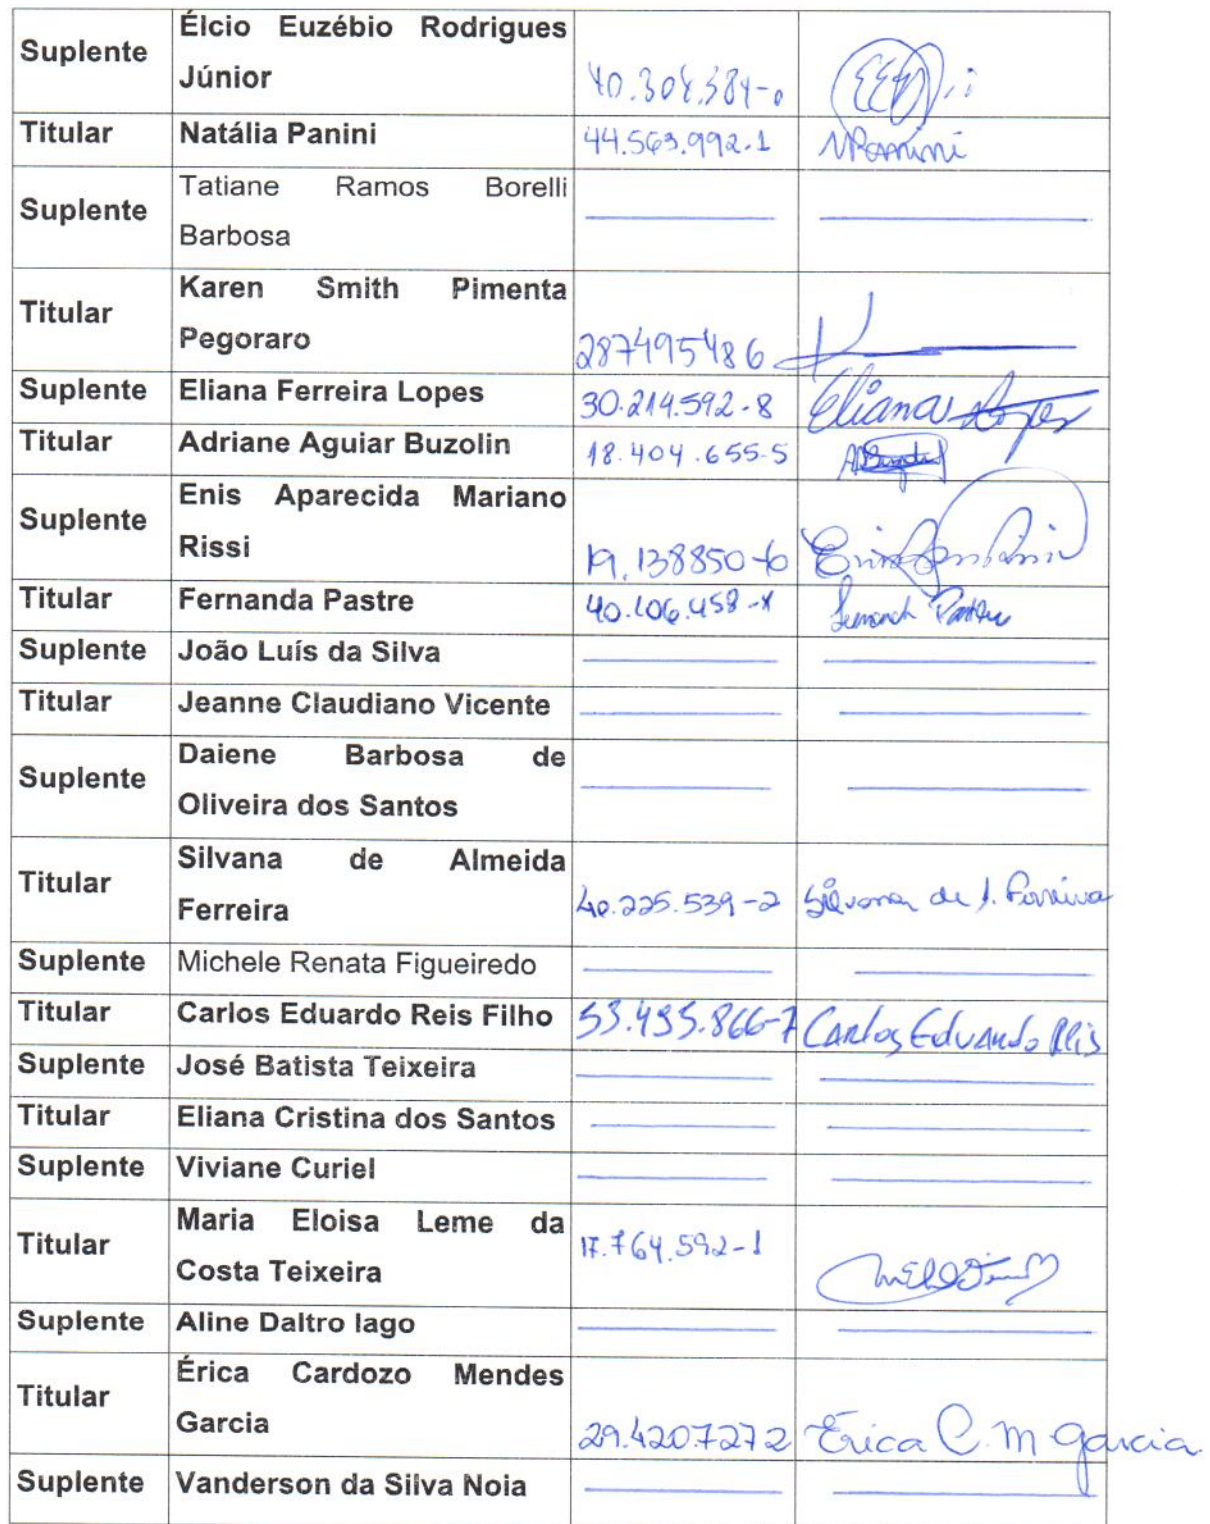 Suplente
Élcio Euzébio Rodrigues
Júnior
Titular Natália Panini 44.563.992-1 NPanini
Suplente
Tatiane Ramos Borelli
Barbosa
Titular
Karen Smith Pimenta
Pegoraro 287495486
Suplente Eliana Ferreira Lopes 30.214.592-8 Eliana Lopes
Titular Adriane Aguiar Buzolin 18.404.655-5
Suplente
Enis Aparecida Mariano
Rissi 19.138850-6
Titular Fernanda Pastre 40.106.458-x
Suplente João Luís da Silva
Titular Jeanne Claudiano Vicente
Suplente
Daiene Barbosa de
Oliveira dos Santos
Titular
Silvana de Almeida
Ferreira 40.225.539-2 Silvana de A. Ferreira
Suplente Michele Renata Figueiredo
Titular Carlos Eduardo Reis Filho 53.495.866-7 Carlos Eduardo Reis
Suplente José Batista Teixeira
Titular Eliana Cristina dos Santos
Suplente Viviane Curiel
Titular
Maria Eloisa Leme da 17.764.592-1
Costa Teixeira
Suplente Aline Daltro Iago
Titular
Érica Cardozo Mendes
Garcia 29.4207272 Érica C. M Garcia
Suplente Vanderson da Silva Noia